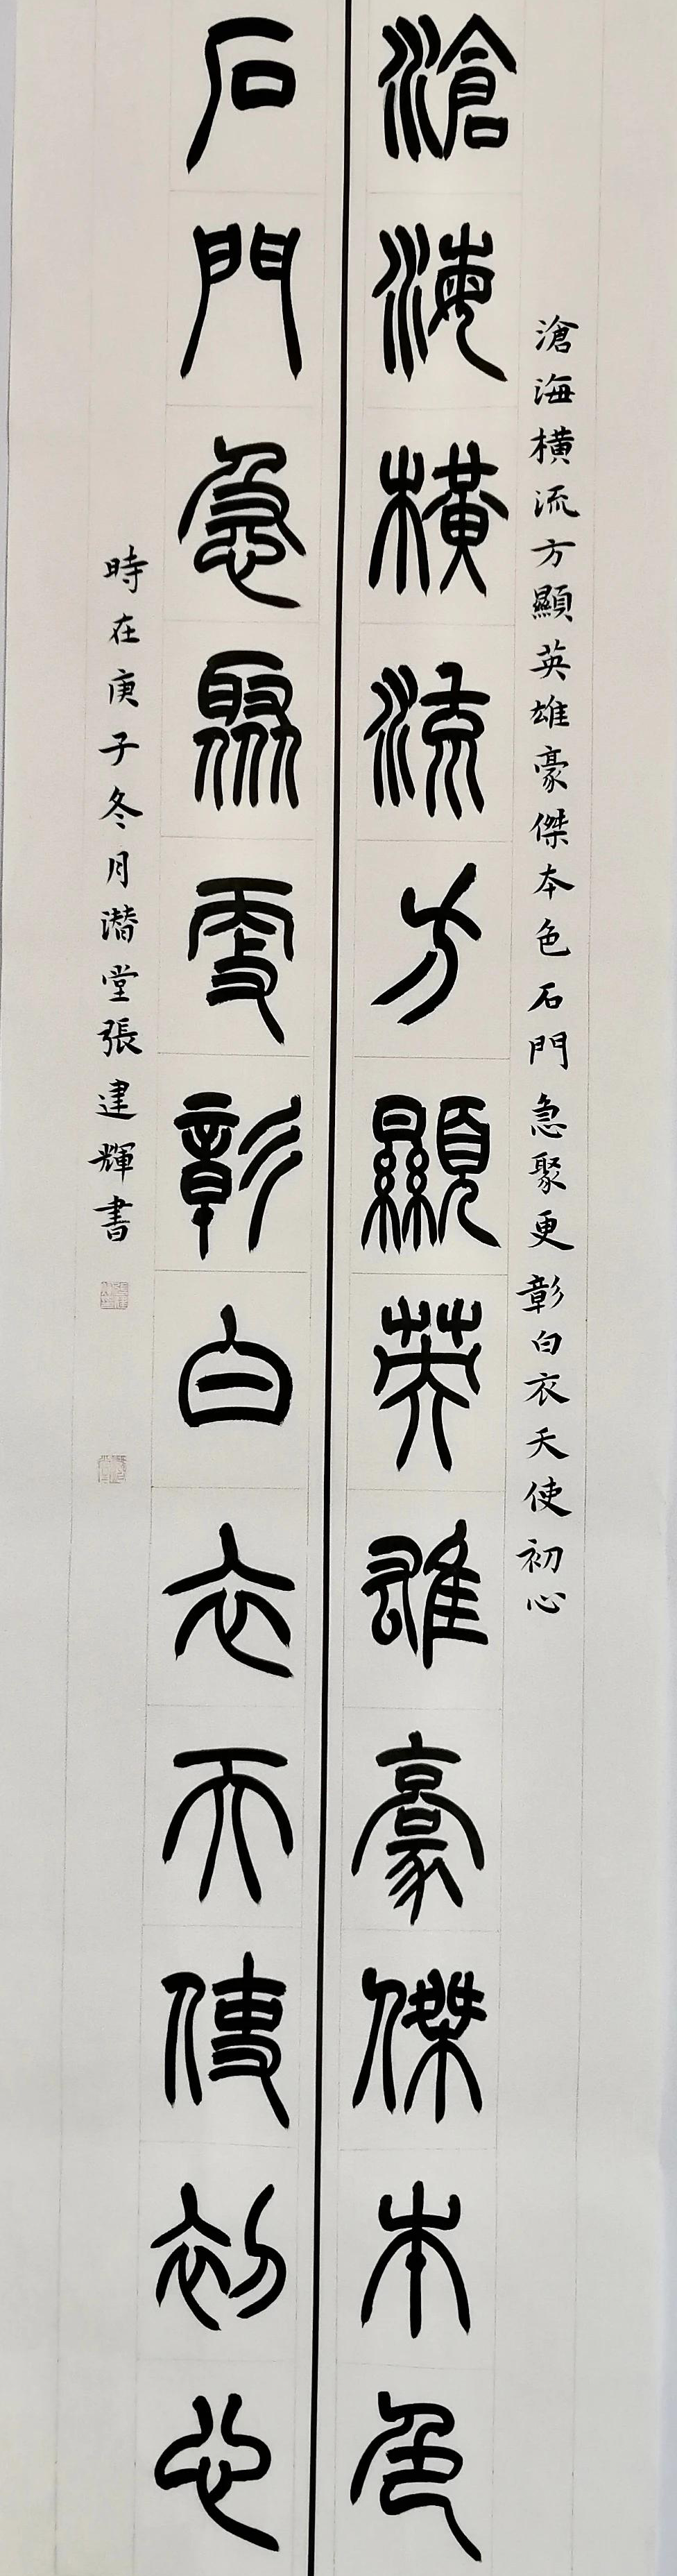 滄海橫流方顯英雄豪傑本色石門急聚更彰白衣天使初心
滄海橫流方顯英雄豪傑本色
石門急聚更彰白衣天使初心
時在庚子冬月潛堂張建輝書